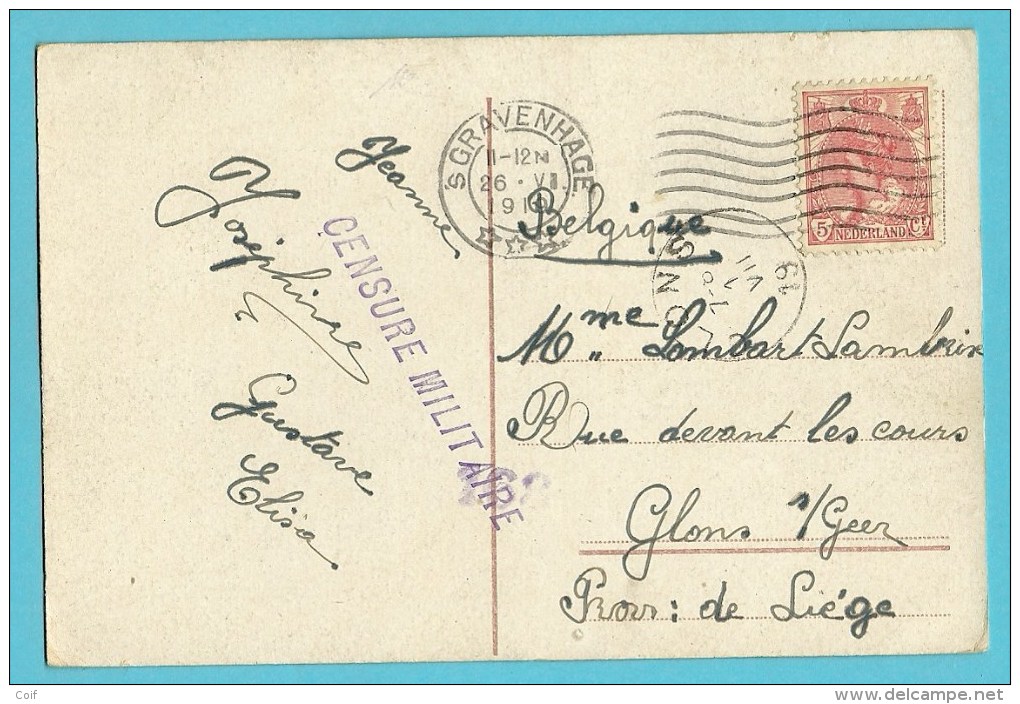 Jeanne
Joséphine
Gustave
Elisa
CENSURE MILITAIRE
'SGRAVENHAGE
11-12N
26 · VI.
Belgique
5 NEDERLAND Ct
GLONS
VII
19
Mme Lombart Lambrix
Rue devant les cours
Glons s/Geer
Prov: de Liége
Coif
www.delcampe.net